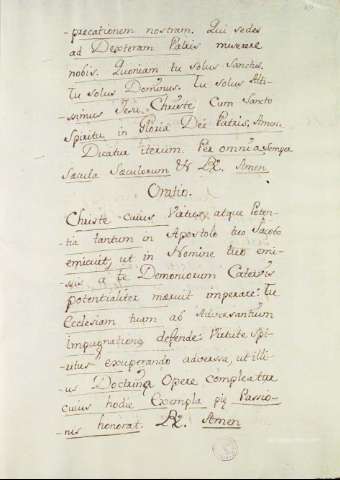 -precationem nostram. Qui sedes
ad Dexteram Patris miserere
nobis. Quoniam tu solus Sanctus.
Tu solus Dominus. Tu solus Alti-
ssimus Jesu Christe Cum Sancto
Spiritu in Gloria Dei Patris, Amen.
Dicatur iterum. Per omnia Semper
Sæcula Sæculorum & ℟. Amen
Oratio.
Christe cuius Virtus, atque Poten-
tia tantum in Apostolo tuo Jacobo
emicuit, ut in Nomine tuo
a te Demoniorum Catervis
potentialiter meruit imperare: Tu
Ecclesiam tuam ab Adversantium
impugnatione defende: Virtute Spi-
-ritus exuperando adversa, ut illi-
-us Doctrina Opere compleatur
cuius hodie Exempla pię Passio-
-nis honorat. ℟. Amen